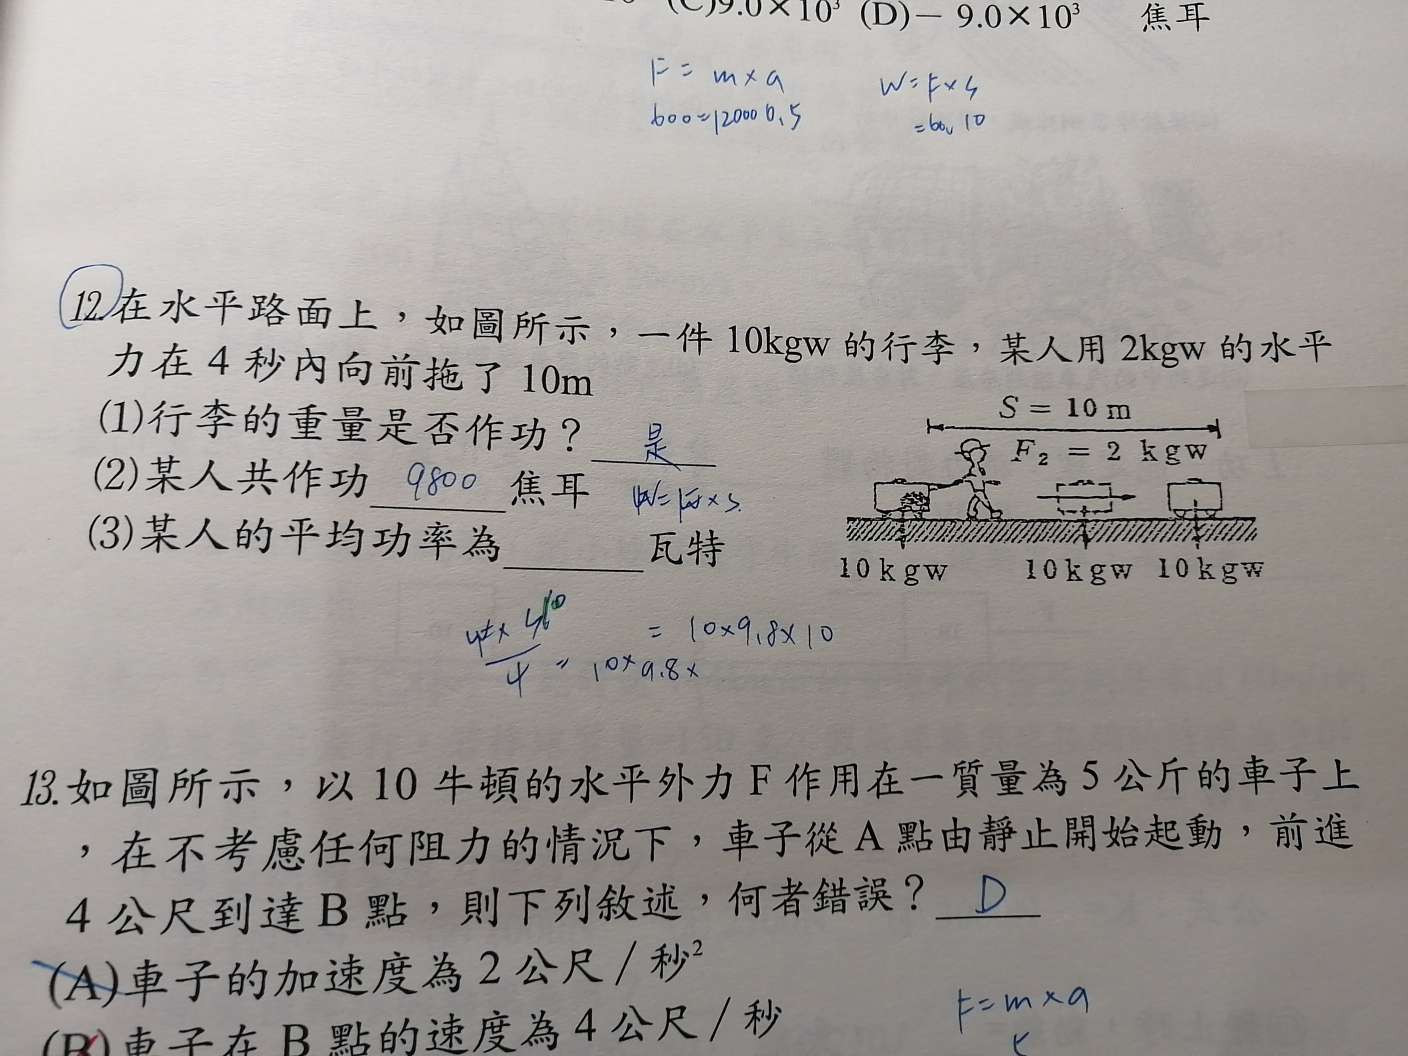 (C)9.0×10³ (D)－ 9.0×10³ 焦耳
F = m×a
W=F×S
600=12000 0.5
=60, 10
12.在水平路面上，如圖所示，一件 10kgw 的行李，某人用 2kgw 的水平
力在 4 秒內向前拖了 10m
(1)行李的重量是否作功？ 是
(2)某人共作功 9800 焦耳
(3)某人的平均功率為 瓦特
S = 10 m
F₂ = 2 kgw
10kgw 10kgw 10kgw
= 10×9.8×10
4 = 10×9.8×
13.如圖所示，以 10 牛頓的水平外力 F 作用在一質量為 5 公斤的車子上
，在不考慮任何阻力的情況下，車子從 A 點由靜止開始起動，前進
4 公尺到達 B 點，則下列敘述，何者錯誤？ D
(A)車子的加速度為 2 公尺／秒²
(B)車子在 B 點的速度為 4 公尺／秒
F=m×a